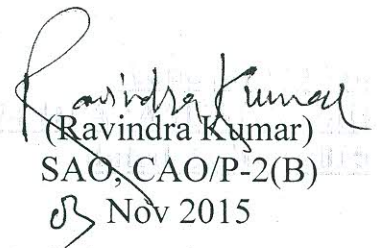 Ravindra Kumar
(Ravindra Kumar)
SAO, CAO/P-2(B)
03 Nov 2015